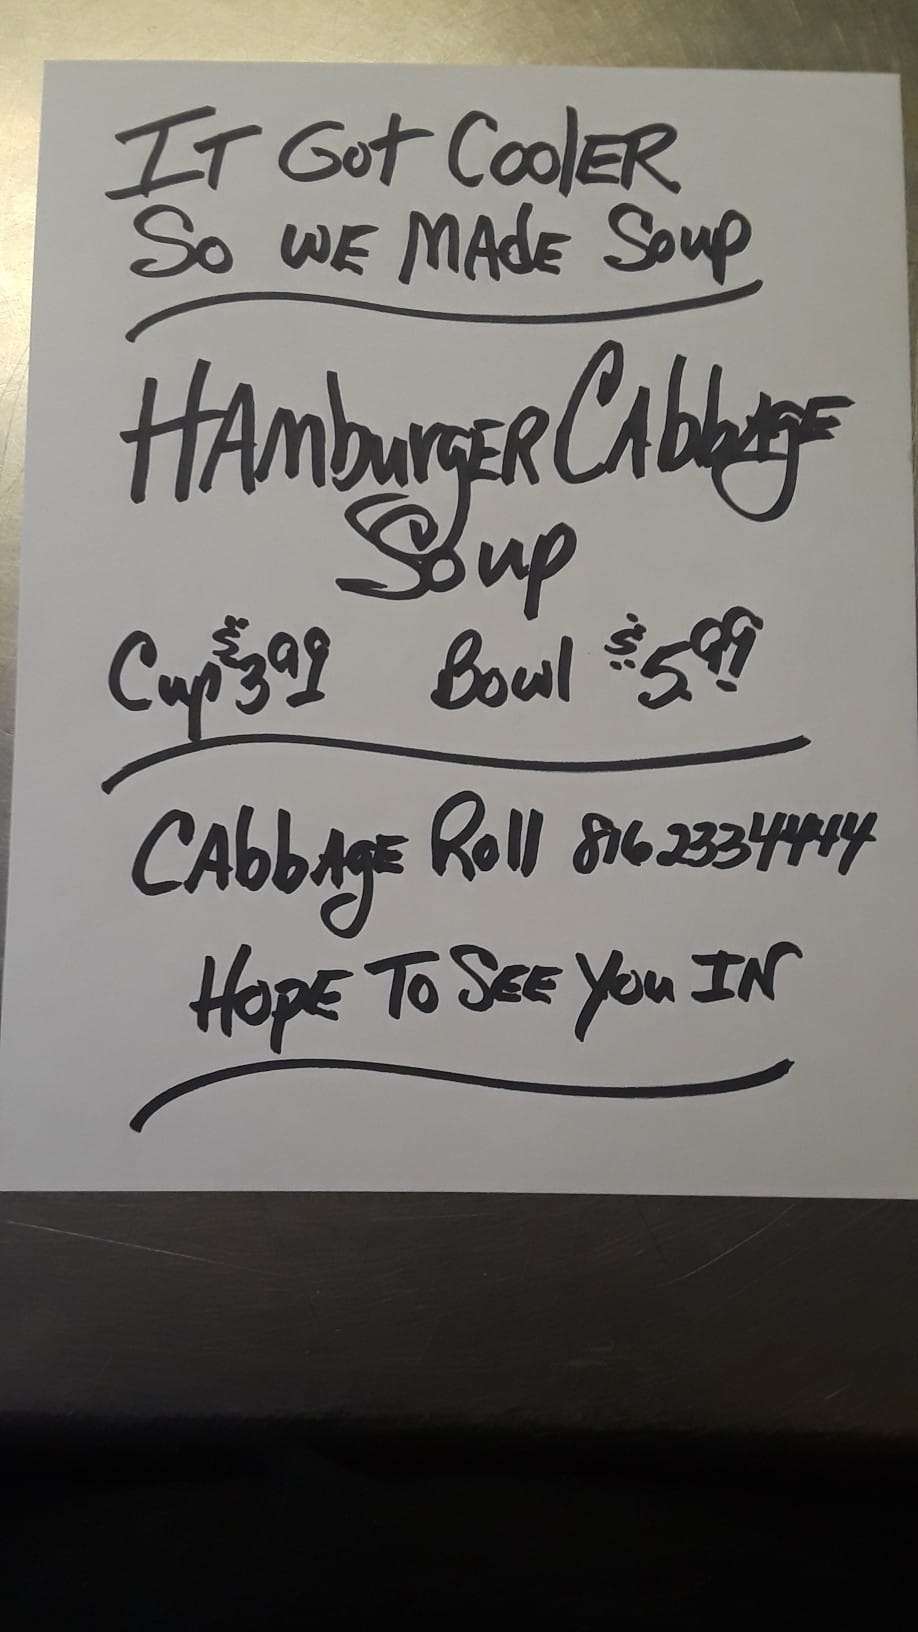 IT GOT COOlER
SO WE MAdE Soup
HAmburgER CAbbAgE
Soup
Cup $3.99 Bowl $5.99
CAbbAgE Roll 816 233 4444
HopE To SEE You IN